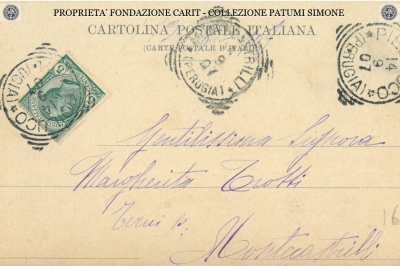 PROPRIETA' FONDAZIONE CARIT - COLLEZIONE PATUMI SIMONE
CARTOLINA POSTALE ITALIANA
(CARTE POSTALE D'ITALIE)
(PERUGIA)
14
9
07
(PERUGIA)
Gentilissima Signora
Margherita Trotti
Terni p.
Montecastrilli
16